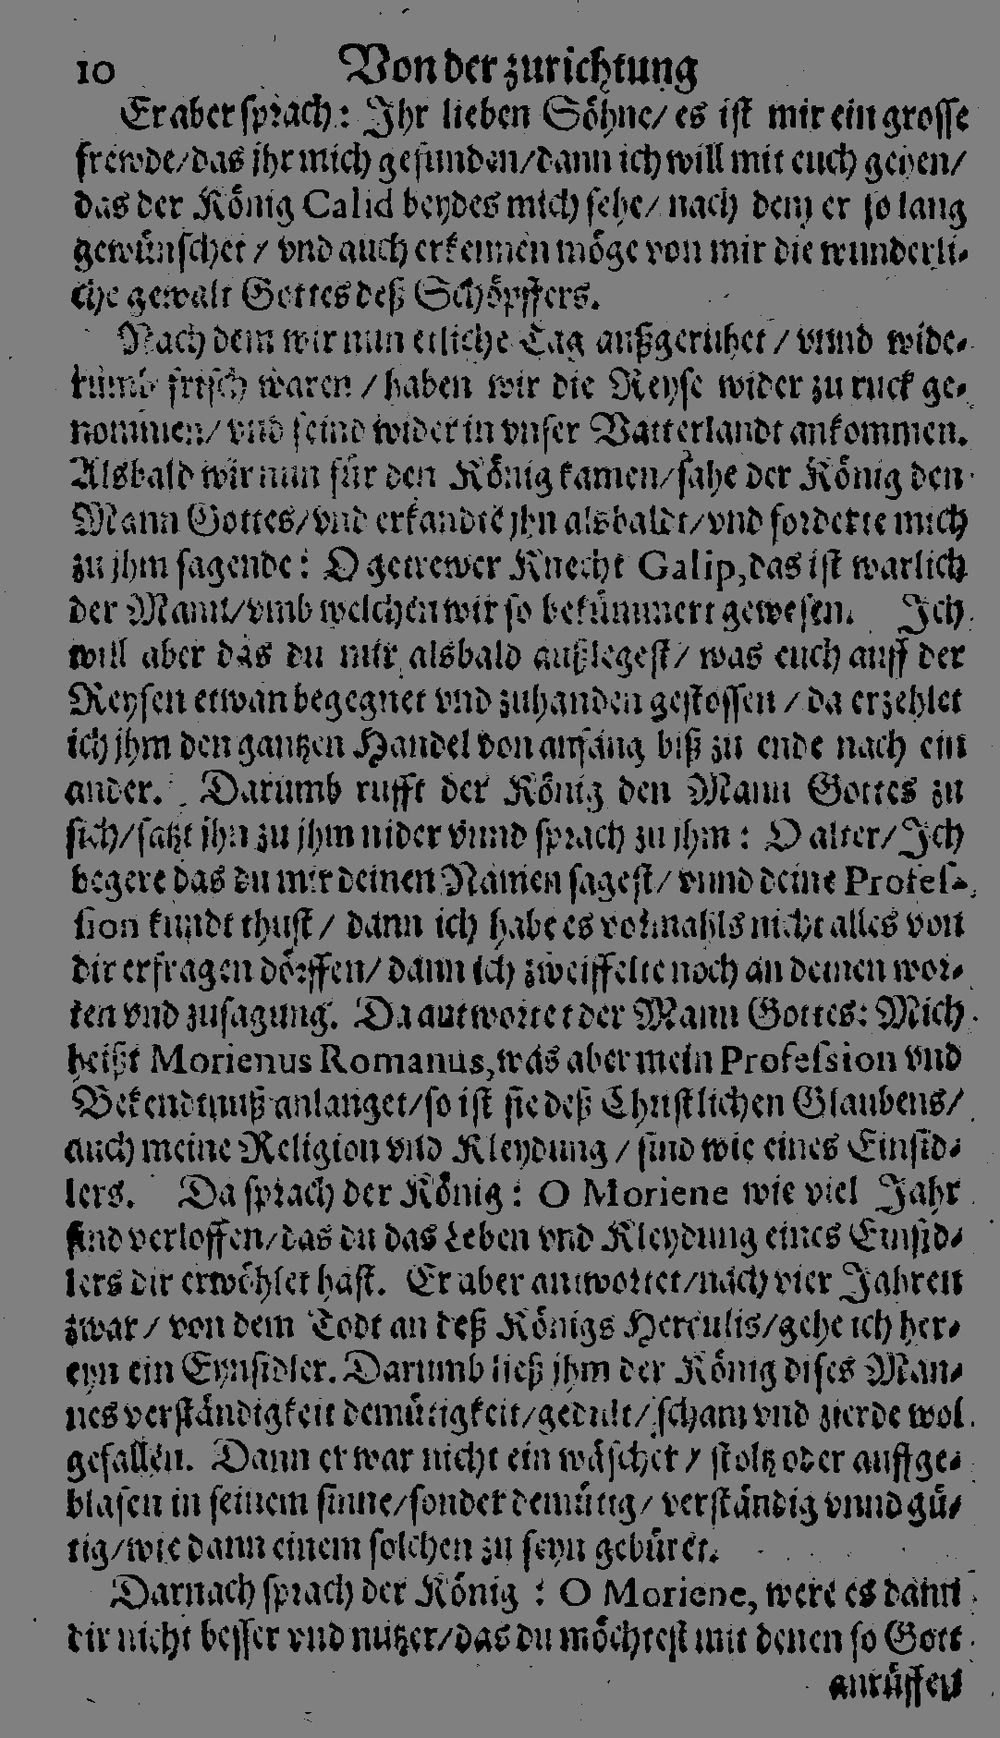 10 Von der zurichtung
Er aber sprach: Ihr lieben Söhne/ es ist mir ein grosse
frewde/ das jhr mich gefunden/ dann ich will mit euch gehen/
das der König Calid beydes mich sehe/ nach dem er so lang
gewünschet / vnd auch erkennen möge von mir die wunderli-
che gewalt Gottes deß Schöpffers.
Nach dem wir nun etliche Tag außgeruhet / vnnd wide-
rumb frisch waren / haben wir die Reyse wider zu ruck ge-
nommen/ vnd seind wider in vnser Vatterlandt ankommen.
Alsbald wir nun für den König kamen/ sahe der König den
Mann Gottes/ vnd erkandte jhn alsbaldt/ vnd forderte mich
zu jhm sagende: O getrewer Knecht Galip, das ist warlich
der Mann/ vmb welchen wir so bekümmert gewesen. Ich
will aber das du mir alsbald außlegest/ was euch auff der
Reysen etwan begegnet vnd zuhanden gestossen / da erzehlet
ich jhm den gantzen Handel von anfang biß zu ende nach ein
ander. Darumb rufft der König den Mann Gottes zu
sich/ satzt jhn zu jhm nider vnnd sprach zu jhm: O alter/ Ich
begere das du mir deinen Namen sagest/ vnnd deine Profes-
sion kundt thust/ dann ich habe es vormahls nicht alles von
dir erfragen dörffen/ dann ich zweiffelte noch an deinen wor-
ten vnd zusagung. Da antwortet der Mann Gottes: Mich
heißt Morienus Romanus, was aber mein Profession vnd
Bekendtnuß anlanget/ so ist sie deß Christlichen Glaubens/
auch meine Religion vnd Kleydung / sind wie eines Einsid-
lers. Da sprach der König: O Moriene wie viel Jahr
sind verloffen/ das du das Leben vnd Kleydung eines Einsid-
lers dir erwöhlet hast. Er aber antwortet/ nach vier Jahren
zwar/ von dem Todt an deß Königs Herculis/ gehe ich her-
eyn ein Eynsidler. Darumb ließ jhm der König dises Man-
nes verständigkeit demütigkeit/ gedult/ scham vnd zierde wol
gefallen. Dann er war nicht ein wäscher / stoltz oder auffge-
blasen in seinem sinne/ sonder demütig/ verständig vnnd gü-
tig/ wie dann einem solchen zu seyn gebüret.
Darnach sprach der König: O Moriene, were es dann
dir nicht besser vnd nutzer/ das du möchtest mit denen so Gott
anrüffen